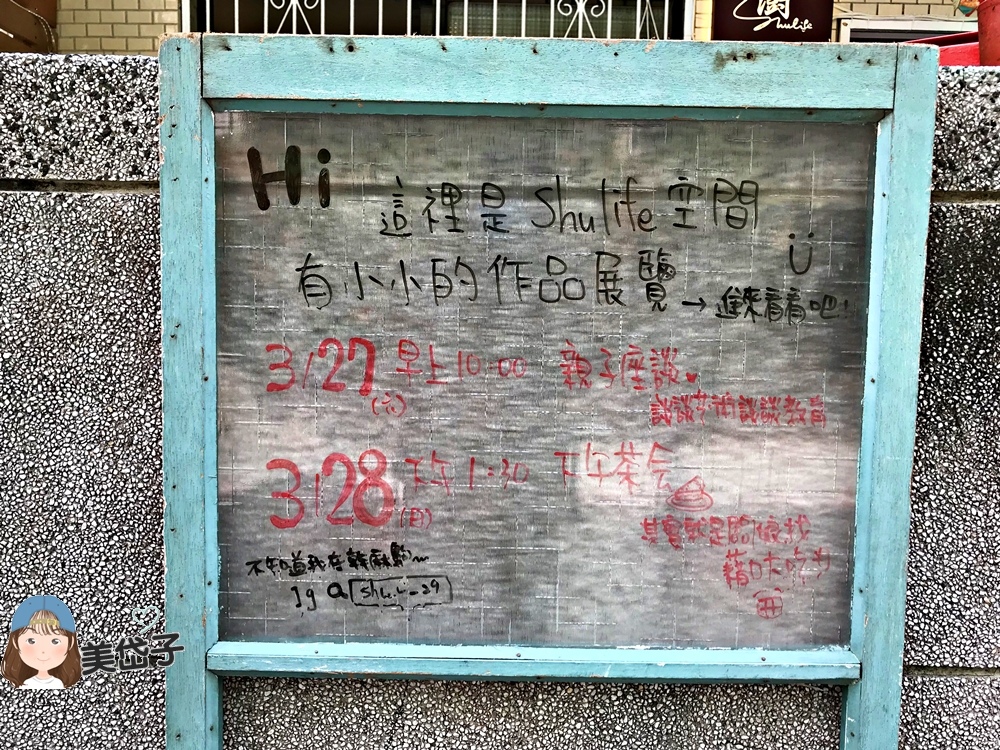 Shulife
Hi
這裡是Shulife空間
有小小的作品展覽→進來看看吧!
3/27(六) 早上10:00 親子座談
談談藝術談談教育
3/28(日) 下午1:30 下午茶会
其實就是
不知道我在幹麻齁~
Ig
美岱子